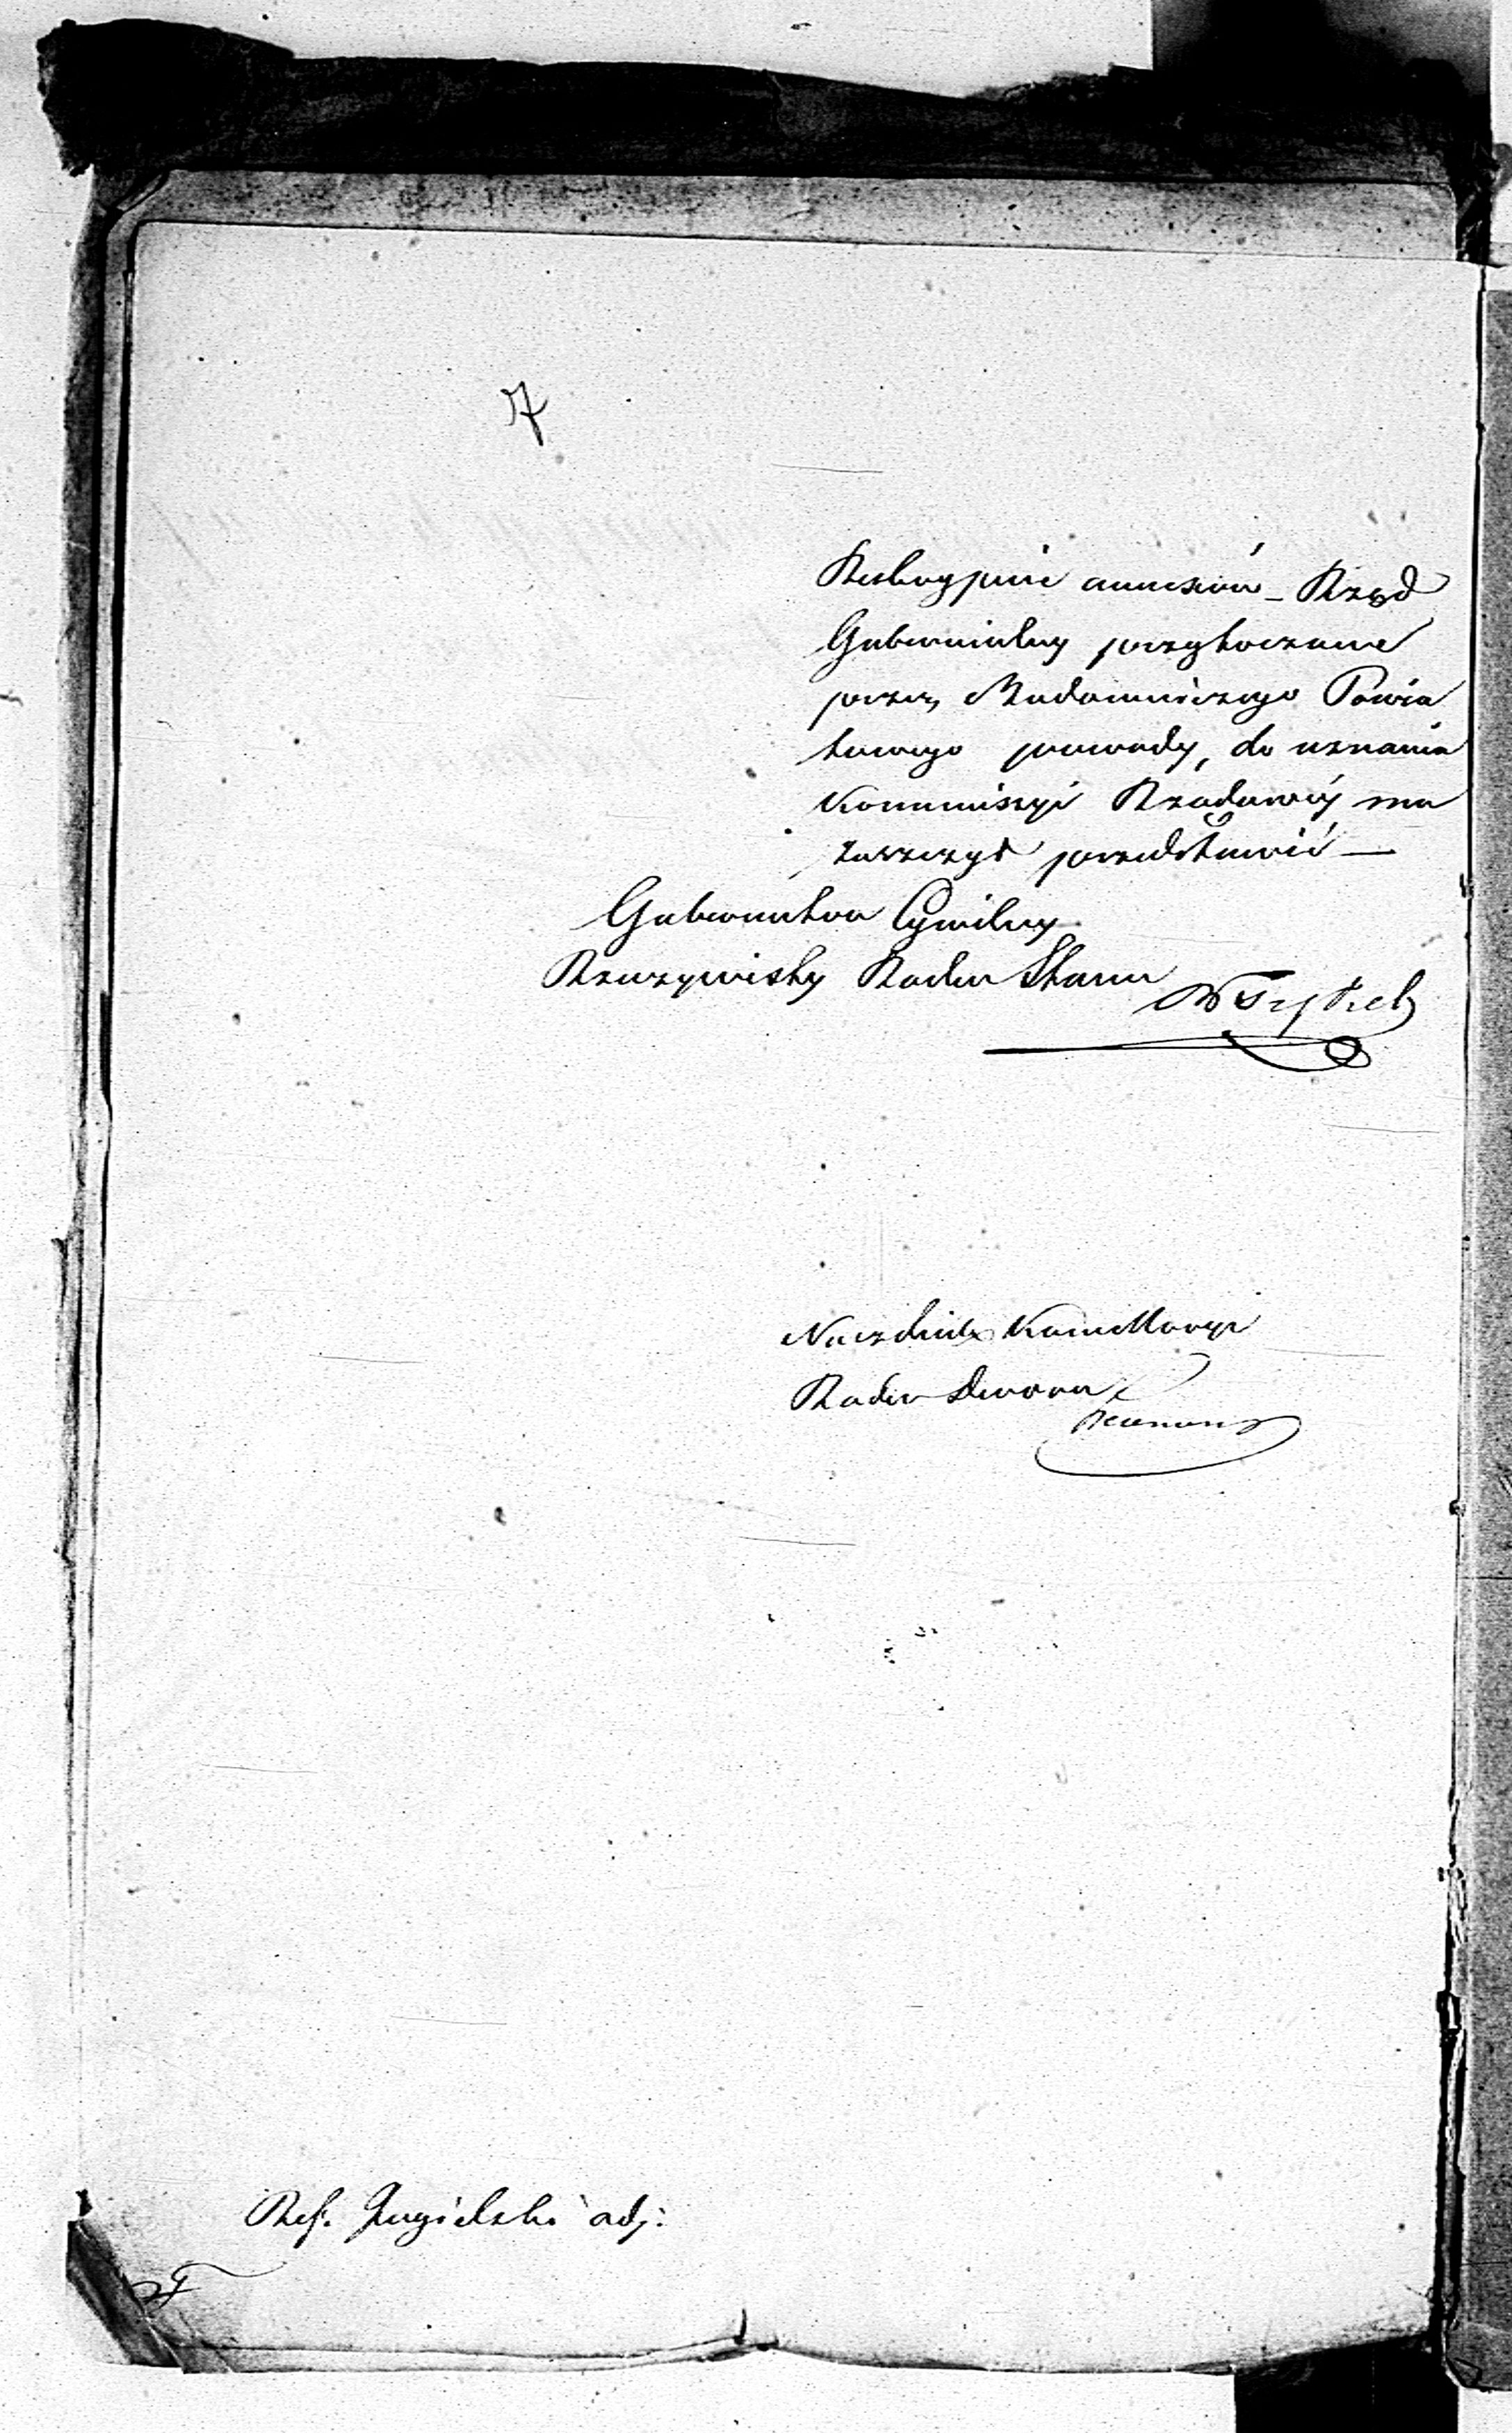 7
Reskrypcie annexów – Rząd
Gubernialny przytoczone
przez Budowniczego Powia
towego powody, do uznania
Kommissyi Rządowéj ma
zaszczyt przedstawić —
Gubernator Cywilny
Rzeczywisty Radca Stanu
Naczelnik Kancellaryi
Radca Dworu
Ref. adj: